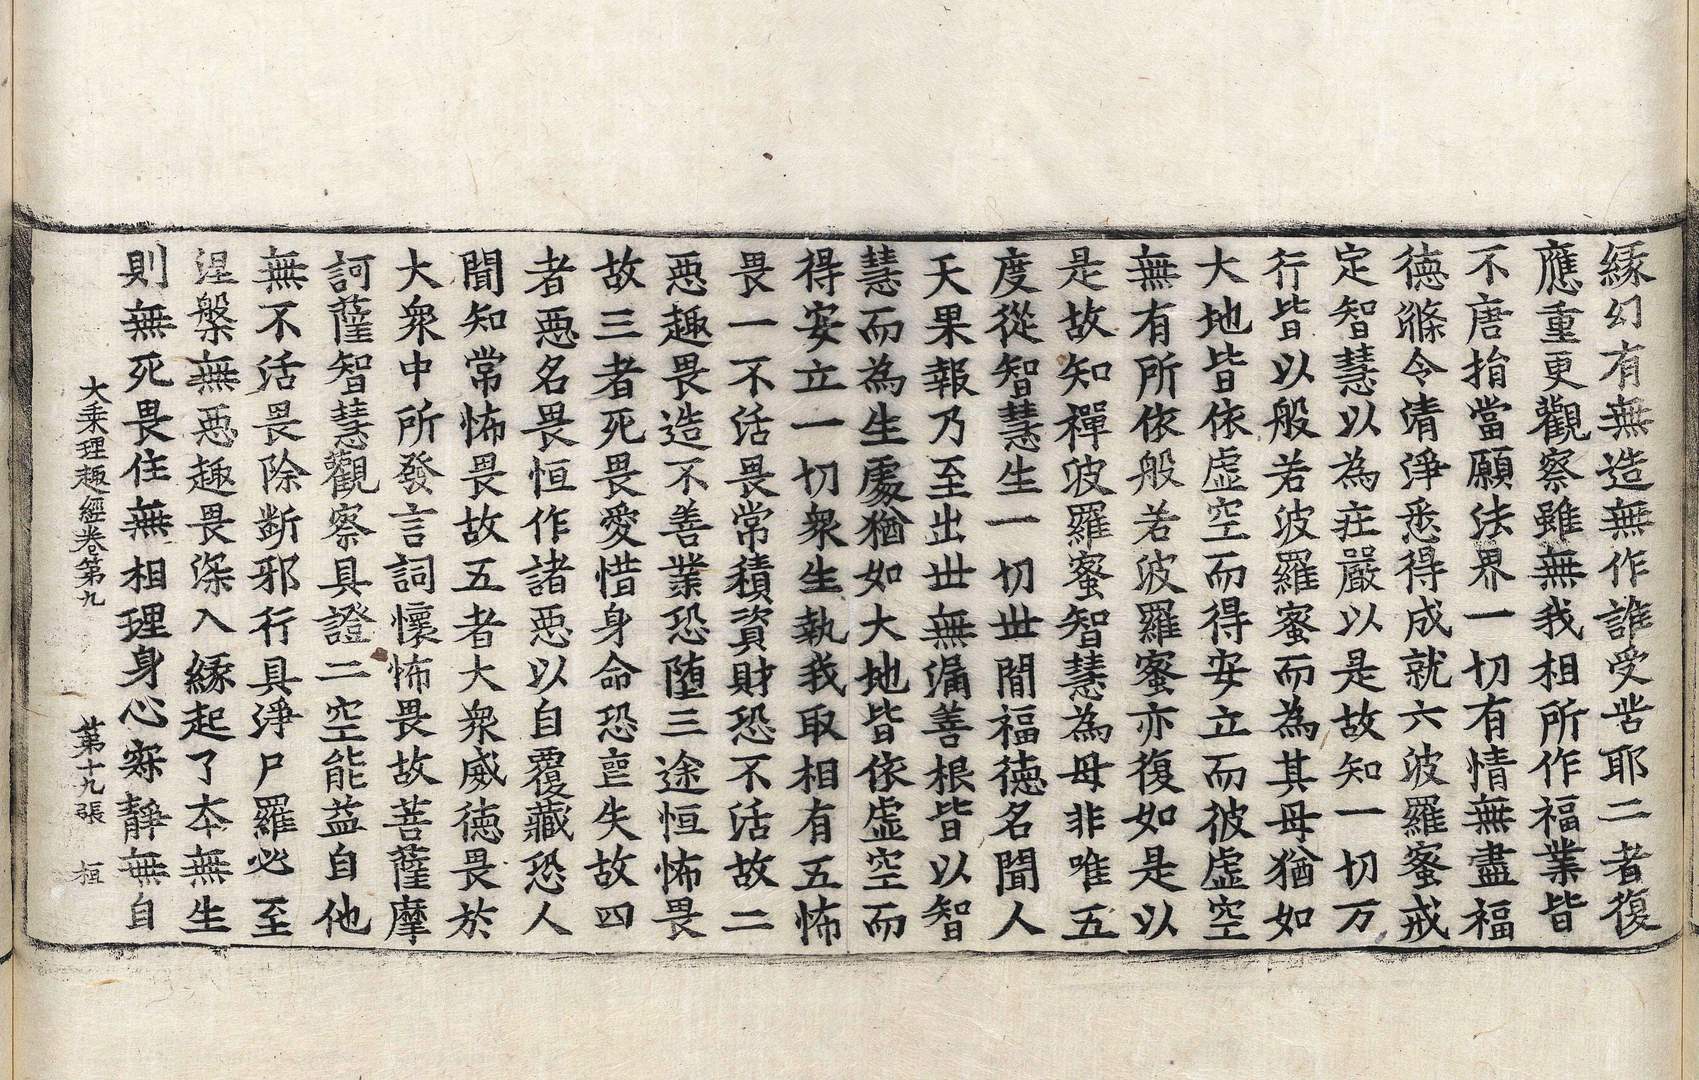 緣幻有無造無作誰受苦耶二者復
應重更觀察雖無我相所作福業皆
不唐捐當願法界一切有情無盡福
德滌令清淨悉得成就六波羅蜜戒
定智慧以為莊嚴以是故知一切万
行皆以般若波羅蜜而為其母猶如
大地皆依虛空而得安立而彼虛空
無有所依般若波羅蜜亦復如是以
是故知禪波羅蜜智慧為母非唯五
度從智慧生一切世間福德名聞人
天果報乃至出世無漏善根皆以智
慧而為生處猶如大地皆依虛空而
得安立一切眾生執我取相有五怖
畏一不活畏常積資財恐不活故二
惡趣畏造不善業恐墮三途恒怖畏
故三者死畏愛惜身命恐喪失故四
者惡名畏恒作諸惡以自覆藏恐人
聞知常怖畏故五者大眾威德畏於
大眾中所發言詞懷怖畏故菩薩摩
訶薩智慧觀察具證二空能益自他
無不活畏除斷邪行具淨尸羅必至
涅槃無惡趣畏深入緣起了本無生
則無死畏住無相理身心寂靜無自
大乘理趣經卷第九 第十九張 桓